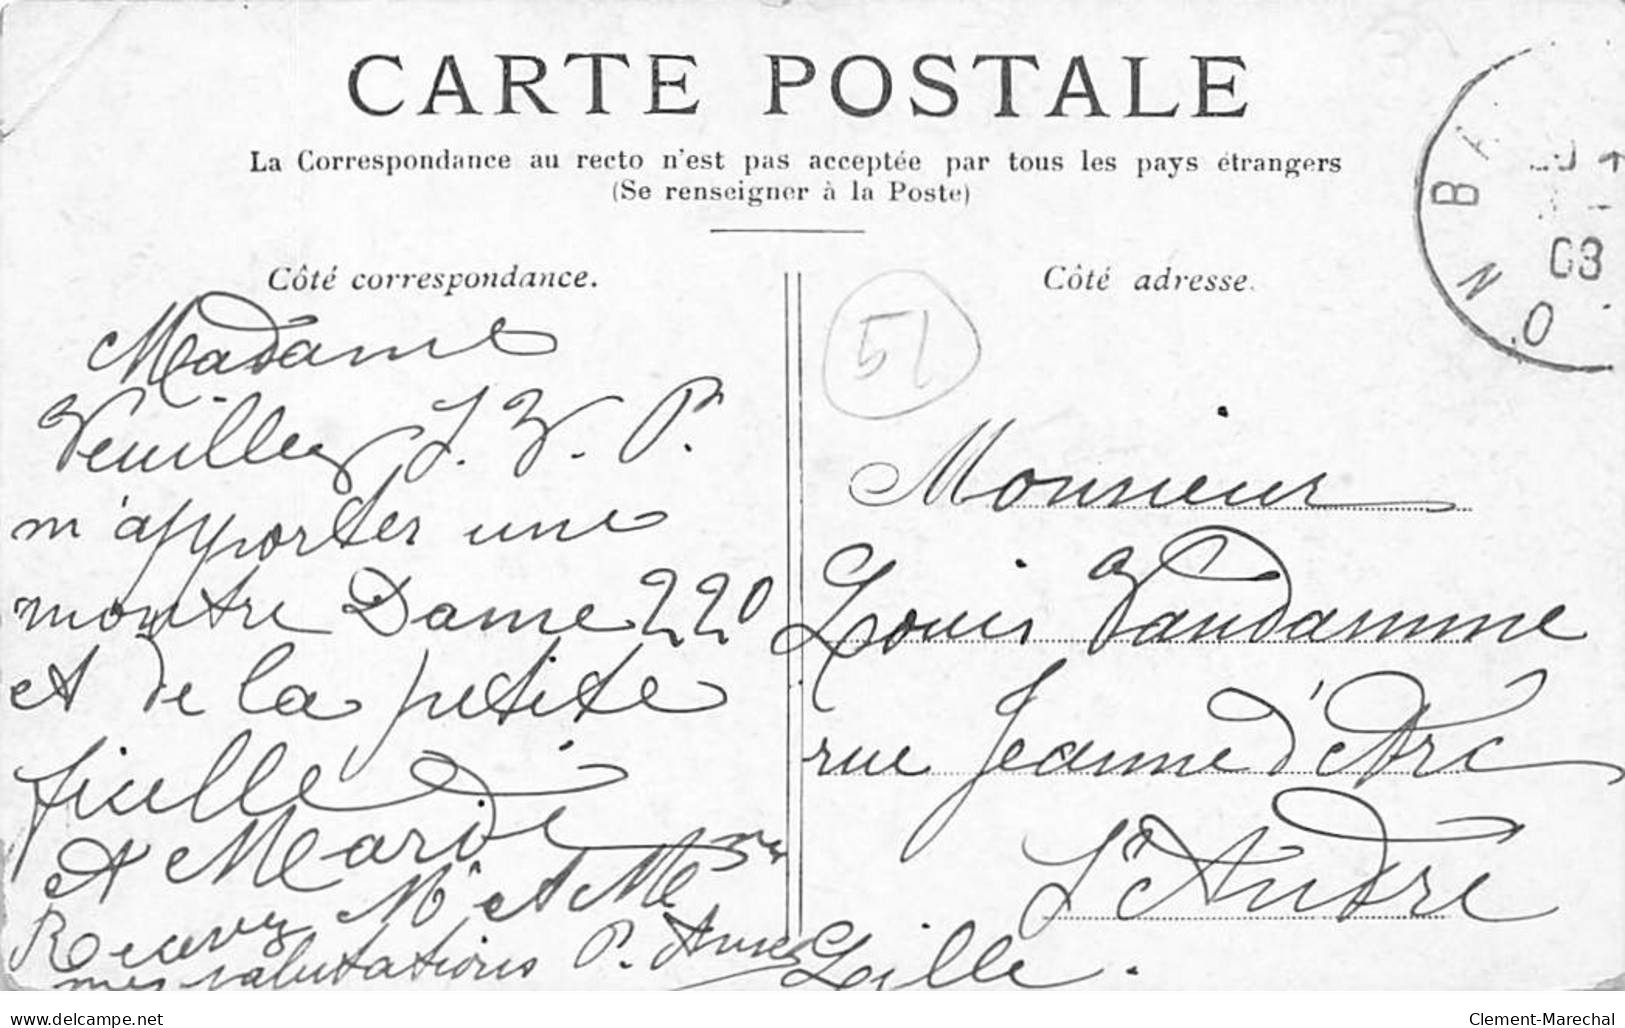 CARTE POSTALE
La Correspondance au recto n'est pas acceptée par tous les pays étrangers
(Se renseigner à la Poste)
Côté correspondance.
Madame
Veuillez S. V. P.
m'apporter une
montre Dame 220
et de la petite
ficelle
et Mardi
Recevez Mr et Me
mes salutations P.
Côté adresse.
51
Monsieur
Louis Vandamme
rue Jeanne d'Arc
St André
Lille.
03
delcampe.net
Clement-Marechal